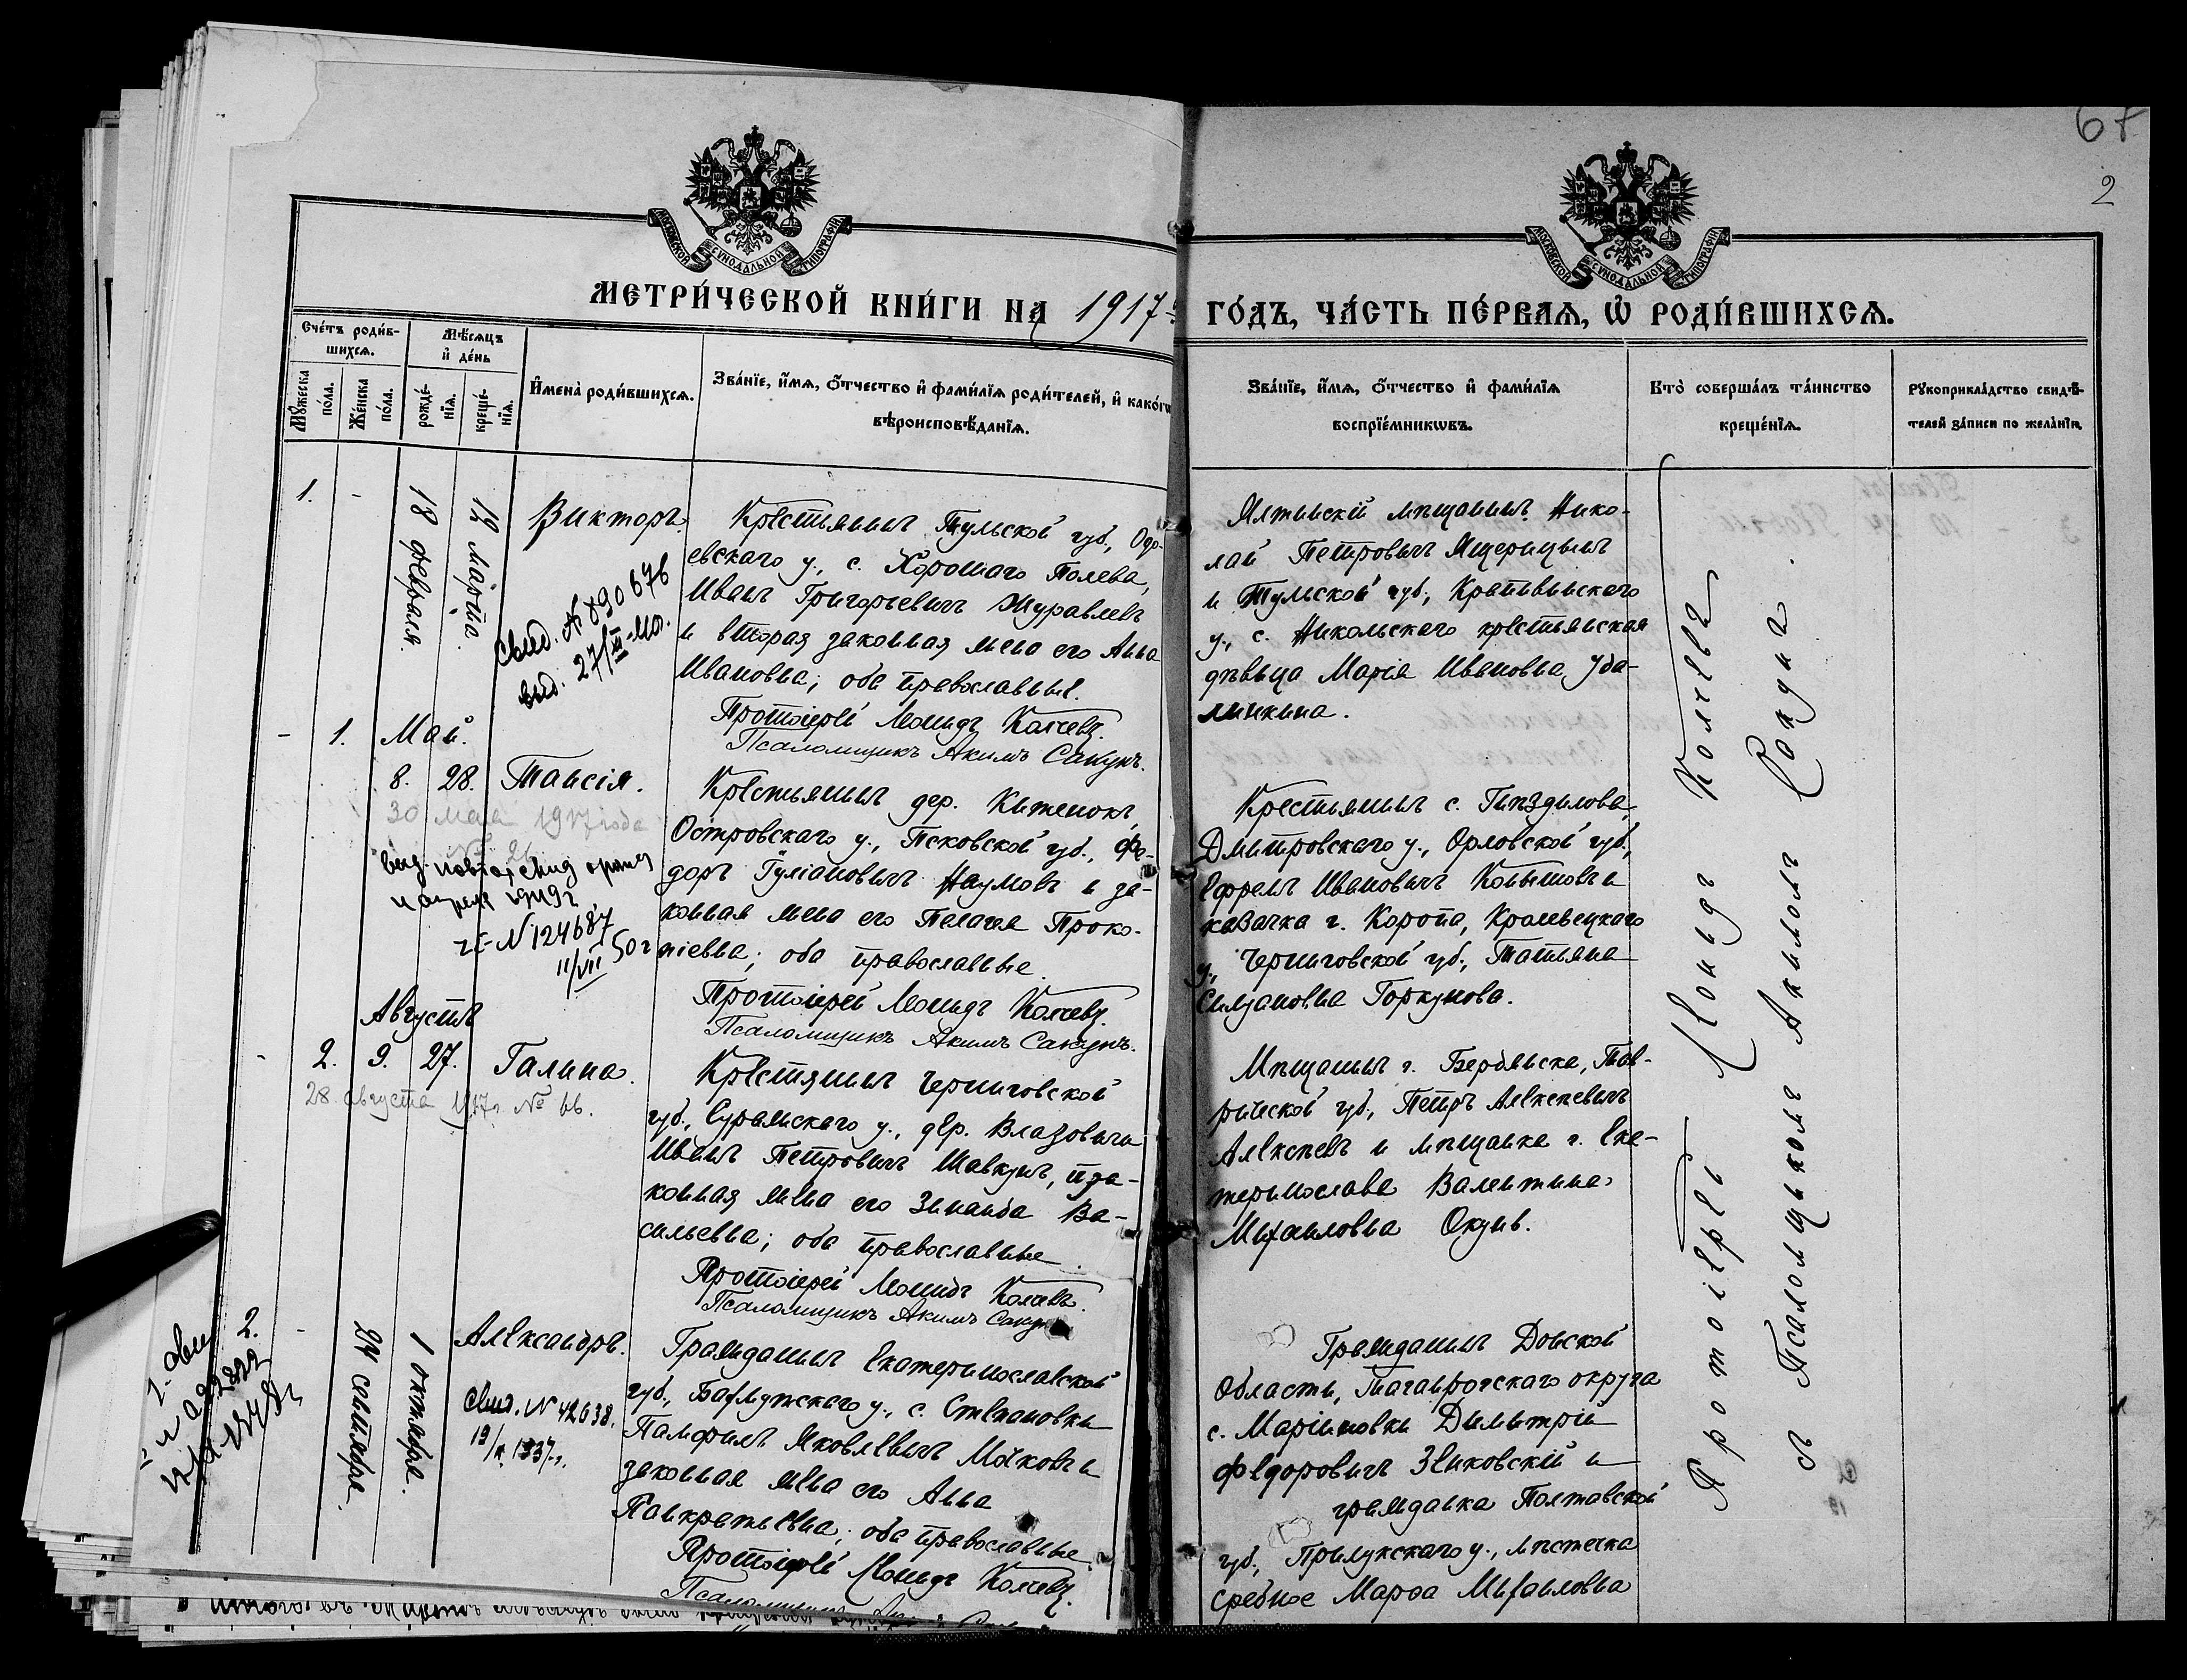 67
2
МОСКОВСКОЙ СѴНОДАЛЬНОЙ ТИПОГРАФІИ
МОСКОВСКОЙ СѴНОДАЛЬНОЙ ТИПОГРАФІИ
МЕТРИ́ЧЕСКОЙ КНИ́ГИ НА 1917 ГО́ДЪ, ЧА́СТЬ ПЕ́РВАѦ, Ѽ РОДИ́ВШИХСѦ.
Сче́тъ роди́в-
шихсѧ.
Мꙋ́жеска
по́ла.
Же́нска
по́ла.
Мѣ́сѧцъ
и҆ де́нь
рожде́-
нїѧ.
креще́-
нїѧ.
И҆мена̀ роди́вшихсѧ.
Зва́нїе, и҆́мѧ, ѻ҆́тчество и҆ фами́лїѧ роди́телей, и҆ како́гѡ
вѣроисповѣ́данїѧ.
Зва́нїе, и҆́мѧ, ѻ҆́тчество и҆ фами́лїѧ
воспрїе́мникѡвъ.
Кто̀ соверша́лъ та́инство
креще́нїѧ.
Рꙋкоприкла́дство свидѣ́-
телей за́писи по жела́нїю.
1.
-
18 февраля.
12 марта.
Викторъ.
Свид. № 890676
выд. 27/III-
Крестьянинъ Тульской губ., Одо-
евскаго у., с. Хорошаго Полева,
Иванъ Григорьевичъ Журавлевъ
и вторая законная жена его Анна
Ивановна; оба православные.
Протоіерей Леонидъ Колчевъ.
Псаломщикъ Акимъ Сакунъ.
Ялтинскій мѣщанинъ Нико-
лай Петровичъ Ящерицынъ
и Тульской губ., Крапивинскаго
у., с. Никольскаго крестьянская
дѣвица Марія Ивановна Уда-
линкина.
-
1.
Май.
8.
28.
Таисія.
30 мая 1917 года
№ 26
выд. повтор. свид
апреля
№ 124687
11/VII 50 г
Крестьянинъ дер. Китенокъ,
Островскаго у., Псковской губ., Фе-
доръ Гуліановичъ Наумовъ и за-
конная жена его Пелагея Проко-
піевна; оба православные.
Протоіерей Леонидъ Колчевъ.
Псаломщикъ Акимъ Сакунъ.
Крестьянинъ с. Гнѣздилова,
Дмитровскаго у., Орловской губ.,
Ефремъ Ивановичъ Копытовъ и
казачка г. Коропа, Кролевецкаго
у., Черниговской губ., Татьяна
Силуановна Горкунова.
-
2.
Августъ
9.
27.
Галина.
28. августа 1917 г. № 66.
Крестянинъ Черниговской
губ., Суражскаго у., дер. Влазовичи
Иванъ Петровичъ Шавкунъ, и за-
конная жена его Зинаида Ва-
сильевна; оба православные.
Протоіерей Леонидъ Колчевъ.
Псаломщикъ Акимъ Сакунъ
Мѣщанинъ г. Бердянска, Тав-
рической губ., Петръ Алексѣевичъ
Алексѣевъ и мѣщанка г. Ека-
теринослава Валентина
Михаиловна Окунь.
2.
-
24 сентября.
1 октября.
Александръ.
Свид. № 42638.
19/II 1937 г.
Гражданинъ Екатеринославской
губ., Бахмутскаго у., с. Степановки
Памфилъ Яковлевичъ Мачковъ и
законная жена его Анна
Панкратьевна; оба православные
Протоіерей Леонидъ Колчевъ.
Псаломщикъ
Гражданинъ Донской
Области, Таганрогскаго округа
с. Маріиновки Димитрій
Федоровичъ Зенковскій и
гражданка Полтавской
губ., Прилукскаго у., мѣстечка
Сребное Марѳа Михаиловна
Протоіерей Леонидъ Колчевъ
съ Псаломщикомъ Акимомъ Сакуна.